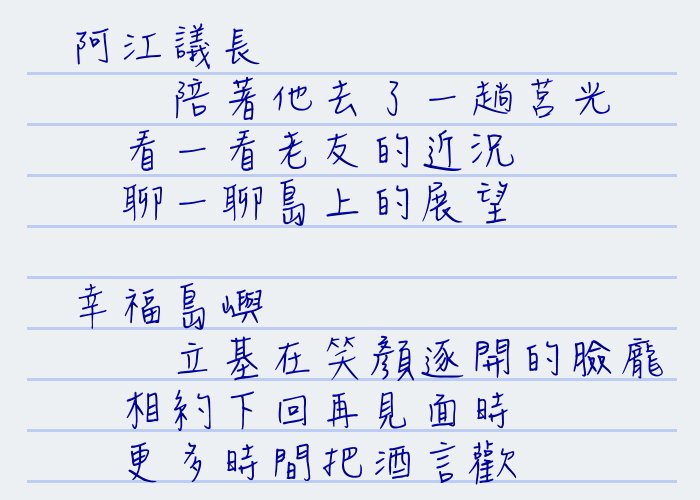 阿江議長
陪著他去了一趟莒光
看一看老友的近況
聊一聊島上的展望
幸福島嶼
立基在笑顏逐開的臉龐
相約下回再見面時
更多時間把酒言歡